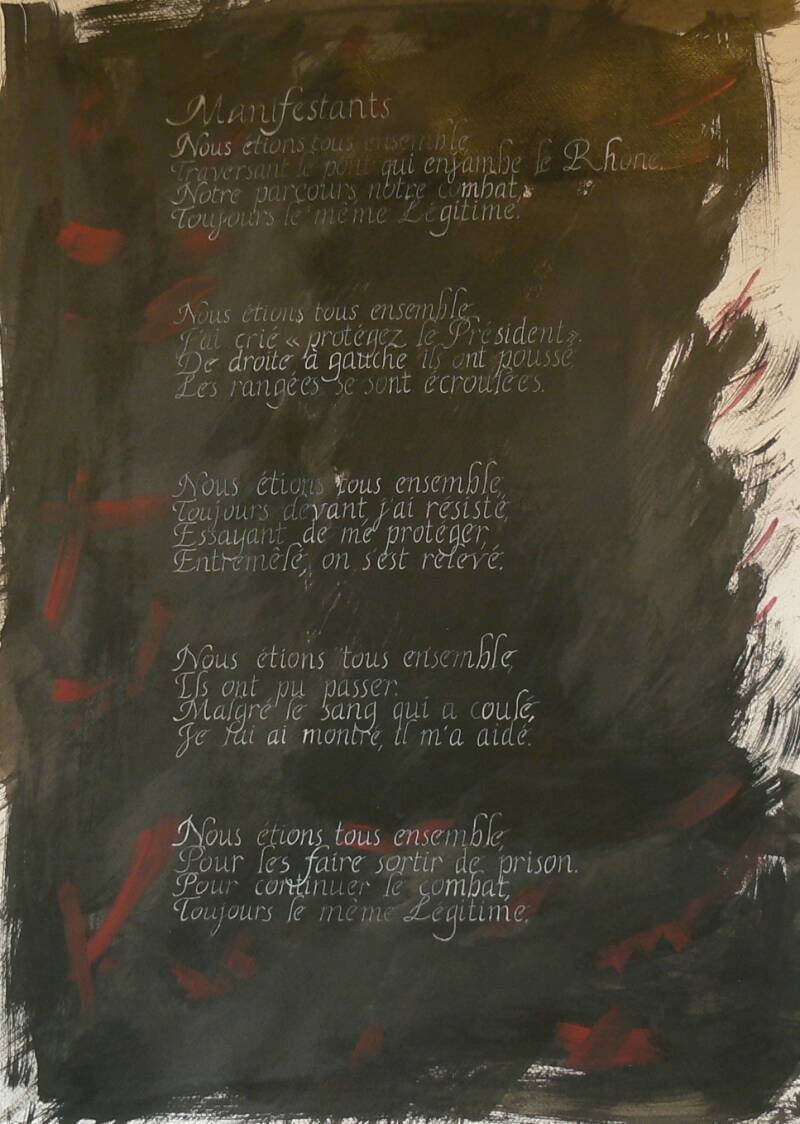 Manifestants
Nous étions tous ensemble
Traversant le pont qui enjambe le Rhone.
Notre parcours, notre combat,
Toujours le même Légitime.
Nous étions tous ensemble
J'ai crié « protégez le Président ».
De droite à gauche ils ont poussé
Les rangées se sont écroulées.
Nous étions tous ensemble,
Toujours devant j'ai résisté
Essayant de me protéger,
Entremêlé, on s'est relevé.
Nous étions tous ensemble,
Ils ont pu passer.
Malgré le sang qui a coulé,
Je lui ai montré, il m'a aidé.
Nous étions tous ensemble,
Pour les faire sortir de prison.
Pour continuer le combat,
Toujours le même Légitime.